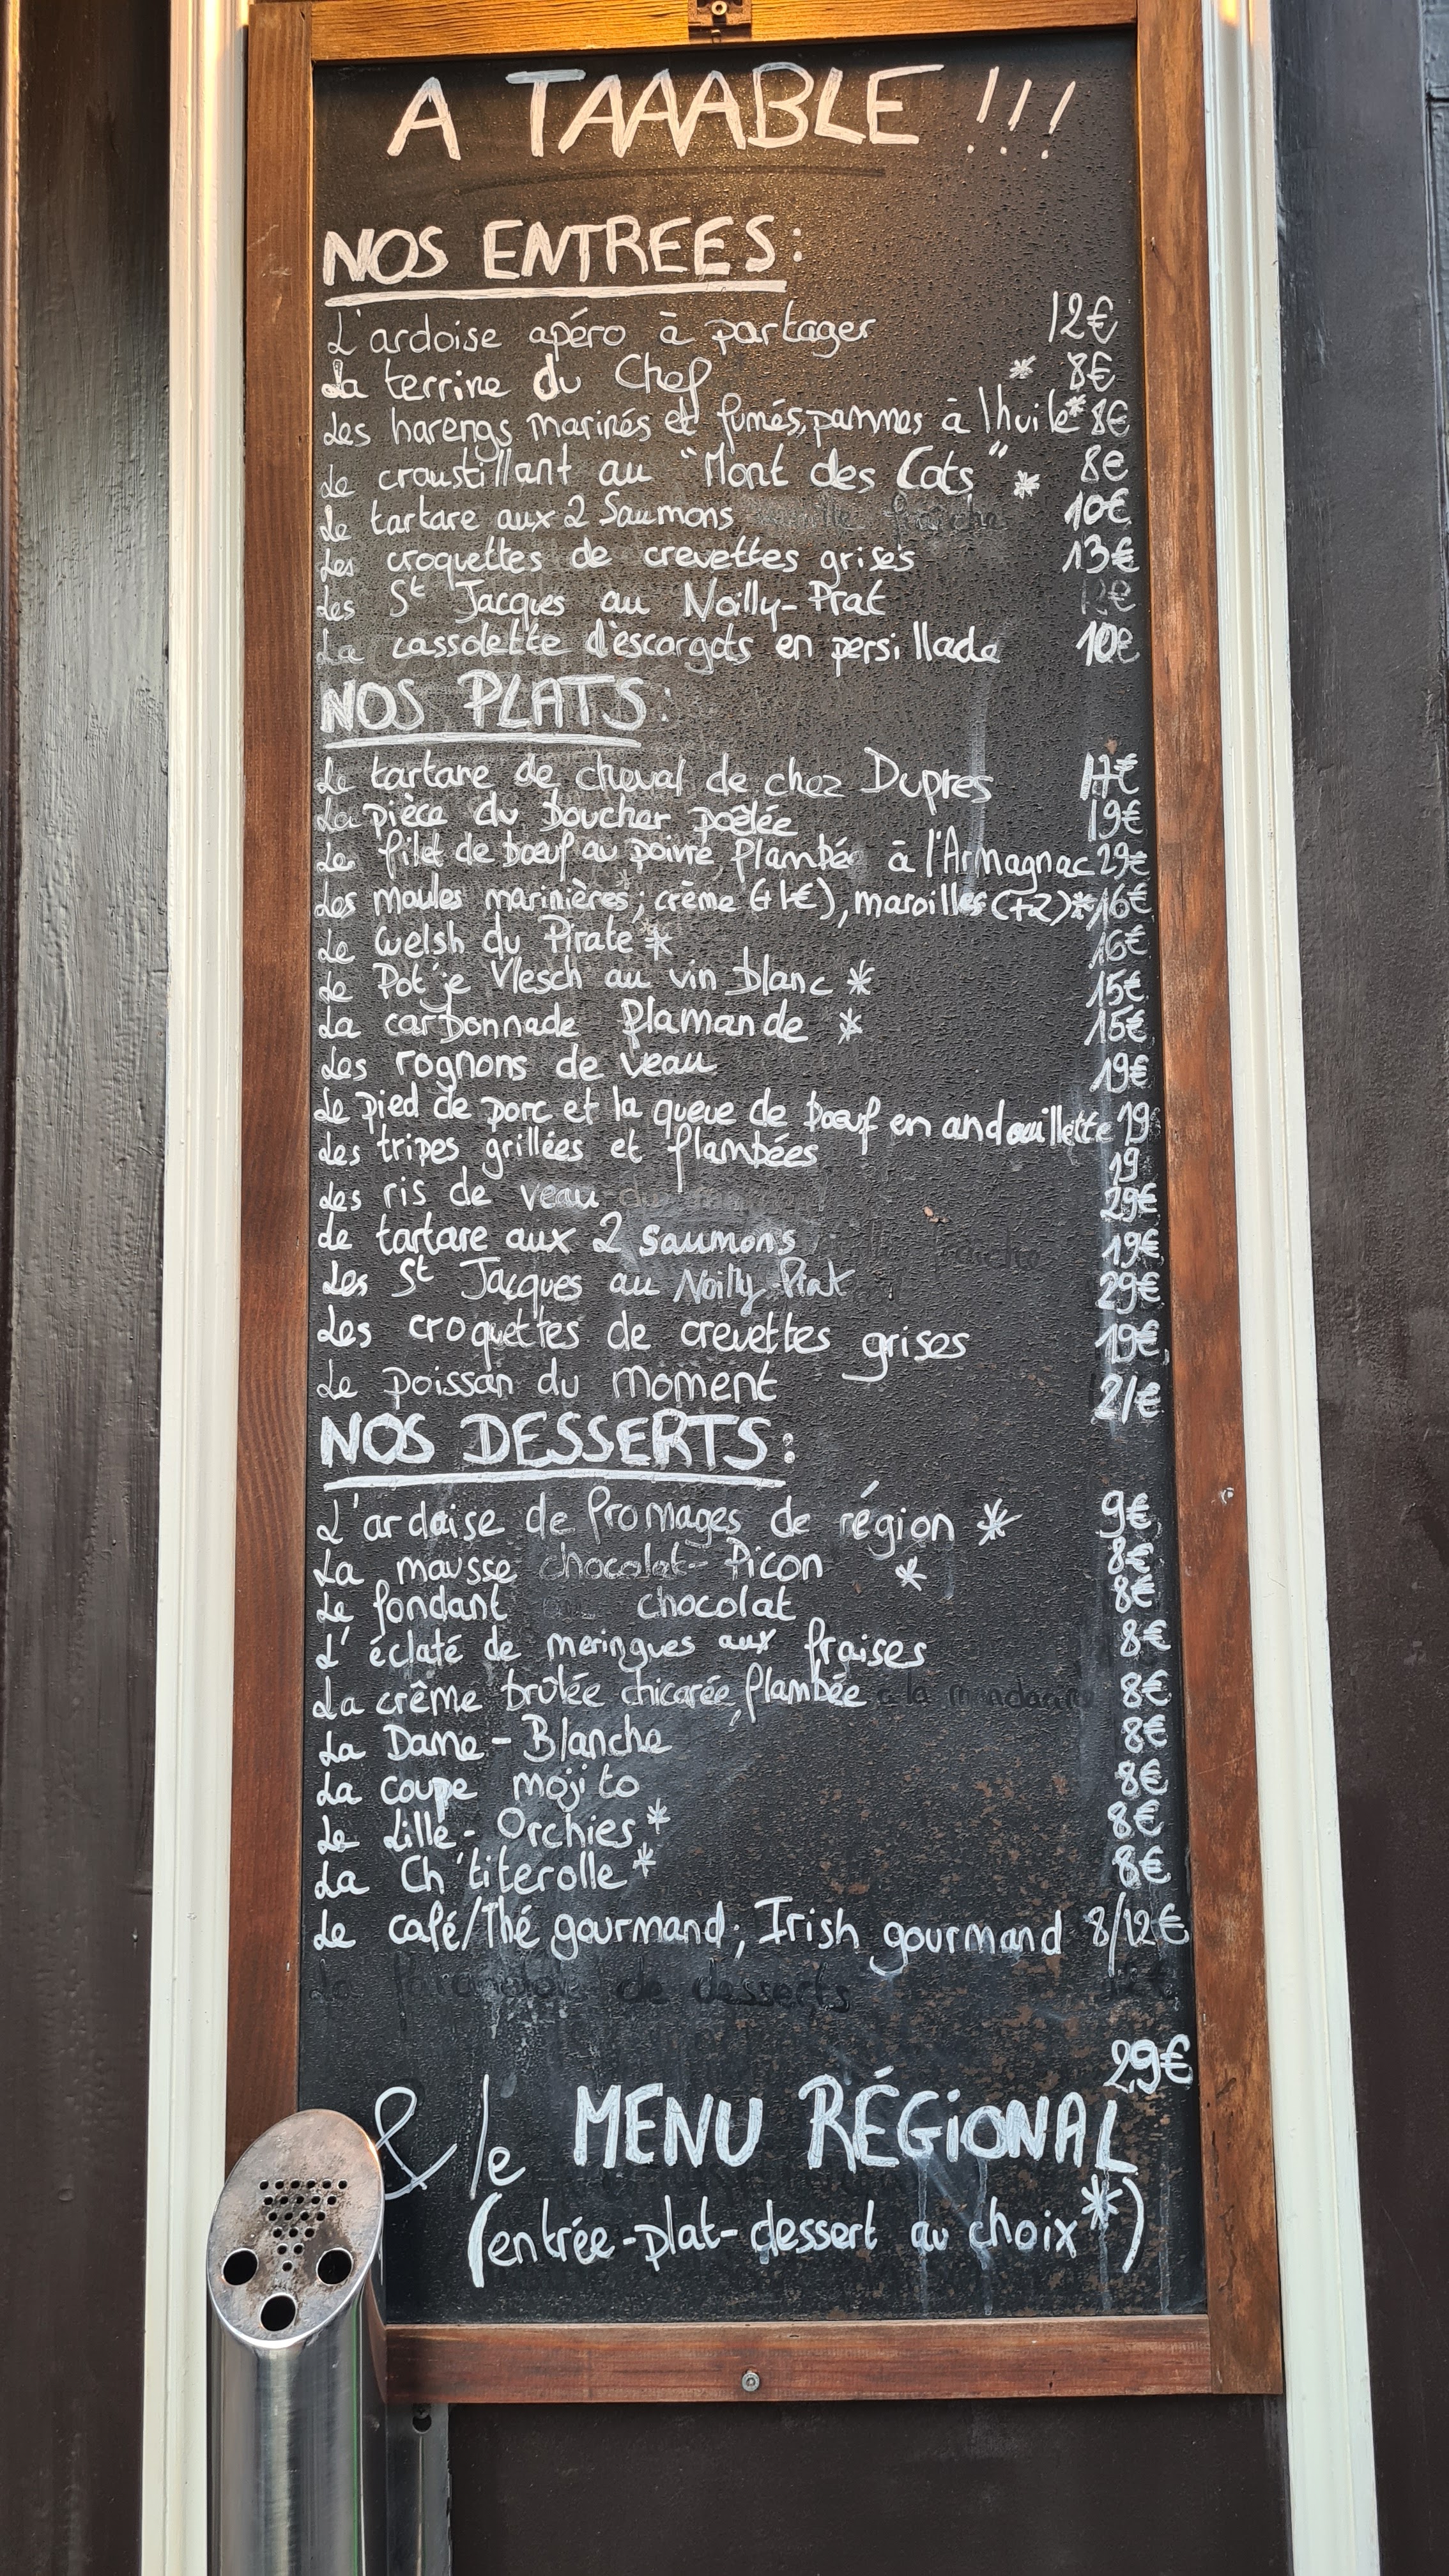 A TAAABLE !!!
NOS ENTREES :
L'ardoise apéro à partager 12€
La terrine du Chef * 8€
Les harengs marinés et fumés, pommes à l'huile* 8€
Le croustillant au "Mont des Cats" * 8€
Le tartare aux 2 Saumons fraîche 10€
Les croquettes de crevettes grises 13€
Les St Jacques au Noilly-Prat
La cassolette d'escargots en persillade 10€
NOS PLATS :
Le tartare de cheval de chez Dupres 17€
La pièce du boucher poêlée 19€
Le filet de boeuf au poivre flambée à l'Armagnac 29€
Les moules marinières ; crème (+1€), maroilles (+2)* 16€
Le welsh du Pirate * 16€
Le Pot'je Vlesch au vin blanc * 15€
La carbonnade flamande * 15€
Les rognons de veau 19€
Le pied de porc et la queue de boeuf en andouillette 19
Les tripes grillées et flambées 19
Les ris de veau 29€
Le tartare aux 2 saumons fraîche 19€
Les St Jacques au Noilly-Prat 29€
Les croquettes de crevettes grises 19€
Le poisson du moment 21€
NOS DESSERTS :
L'ardoise de fromages de région * 9€
La mousse chocolat-Picon * 8€
Le fondant au chocolat 8€
L'éclaté de meringues aux fraises 8€
La crême brûlée chicorée, flambée à la mandarine 8€
La Dame-Blanche 8€
La coupe mojito 8€
Le Lille-Orchies * 8€
La Ch'titerolle * 8€
Le café/Thé gourmand ; Irish gourmand 8/12€
La farandole de desserts
29€
& le MENU RÉGiONAL
(entrée-plat-dessert au choix*)